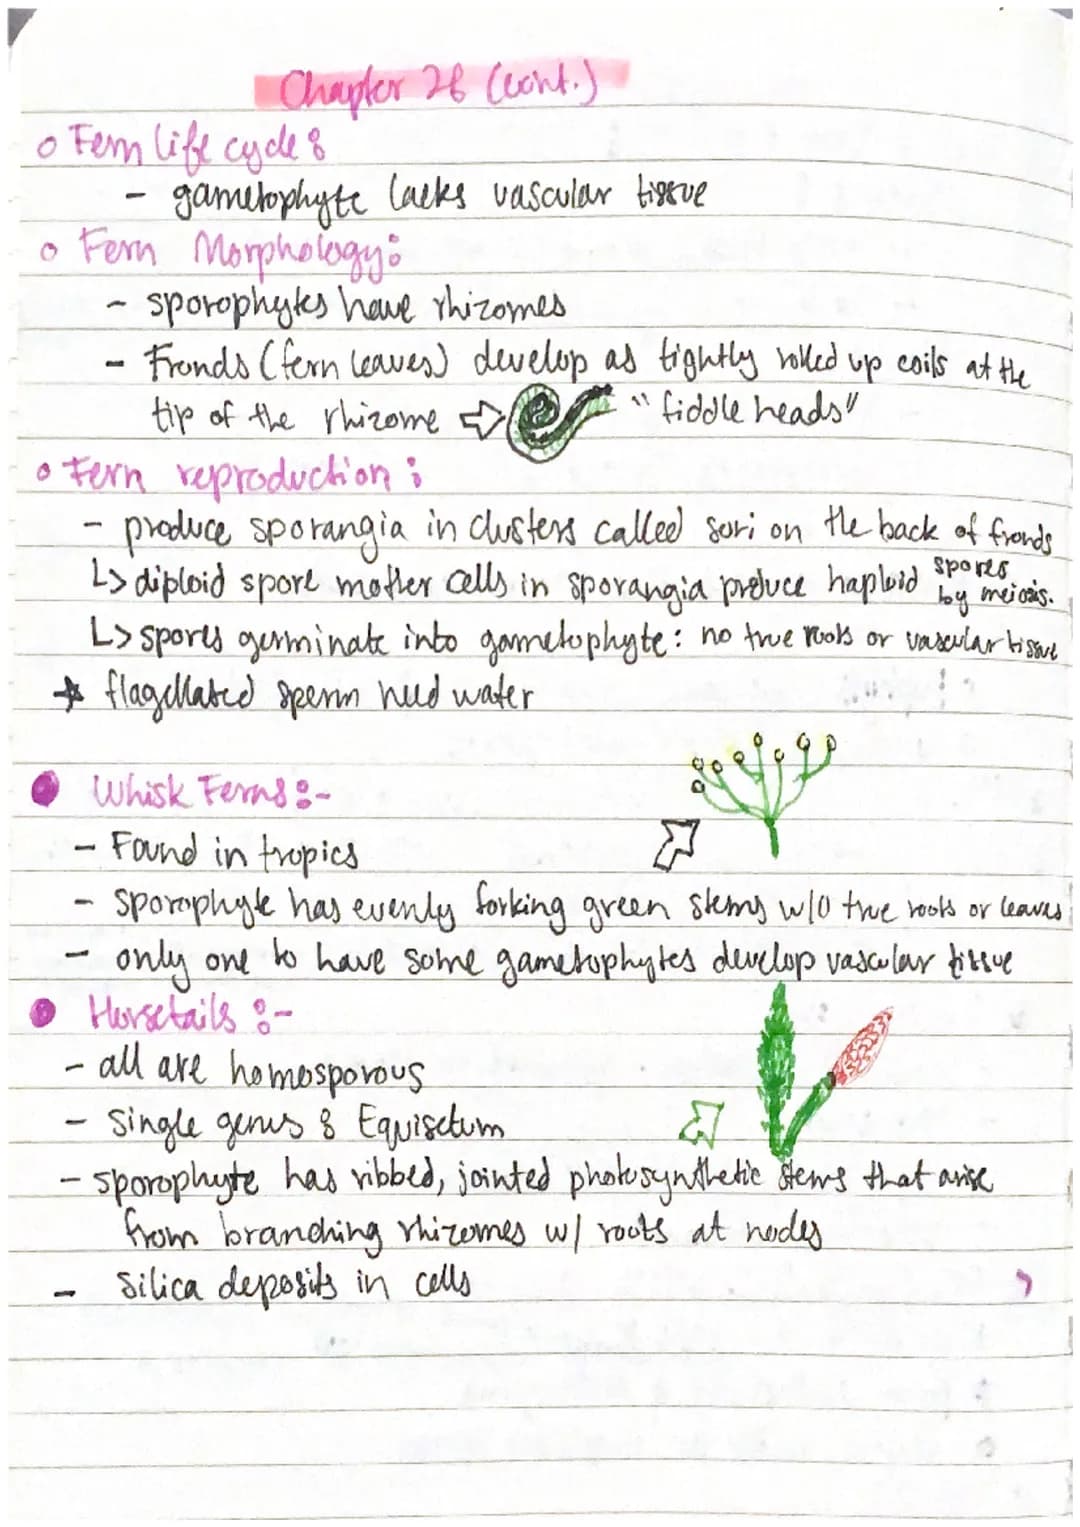 Chapter 28 (cont.)
o Fern life cycle :
- gametophyte lacks vascular tissue
o Fern Morphology:
- sporophytes have rhizomes
- Fronds (fern leaves) develop as tightly rolled up coils at the
tip of the rhizome ⇨ "fiddle heads"
o Fern reproduction :
- produce sporangia in clusters called sori on the back of fronds
↳ diploid spore mother cells in sporangia produce haploid spores by meiosis.
↳ spores germinate into gametophyte: no true roots or vascular tissue
☆ flagellated sperm need water
● Whisk Ferns :-
- Found in tropics
- Sporophyte has evenly forking green stems w/o true roots or leaves
- only one to have some gametophytes develop vascular tissue
● Horsetails :-
- all are homosporous
- Single genus : Equisetum
- sporophyte has ribbed, jointed photosynthetic stems that arise
from branching rhizomes w/ roots at nodes
- Silica deposits in cells